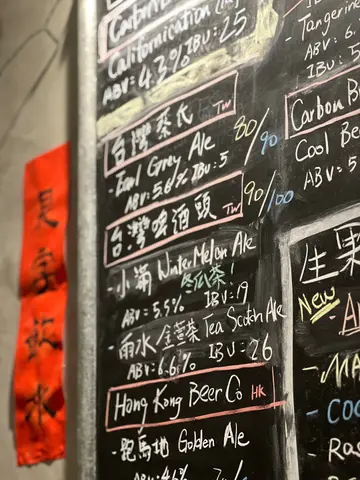 見字飲水
Carbon
Californication
ABV: 4.3% IBU: 25
台灣 茶氏 TW
- Earl Grey Ale 80/90
ABV: 5.6% IBU: 5
台灣啤酒頭 TW 90/100
- 小滿 Winter Melon Ale
冬瓜茶!
ABV: 5.5% IBU: 19
- 雨水 金萱茶 Tea Scotch Ale
ABV: 6.6% IBU: 26
Hong Kong Beer Co HK
- 跑馬地 Golden Ale
Tangerin
ABV: 6.
IBU: 5
Carbon B
Cool Bee
ABV: 5
生果
New
- MA
- COO
- Ras